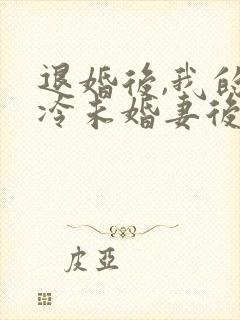 退婚後,我的
冷未婚妻後
皮亞